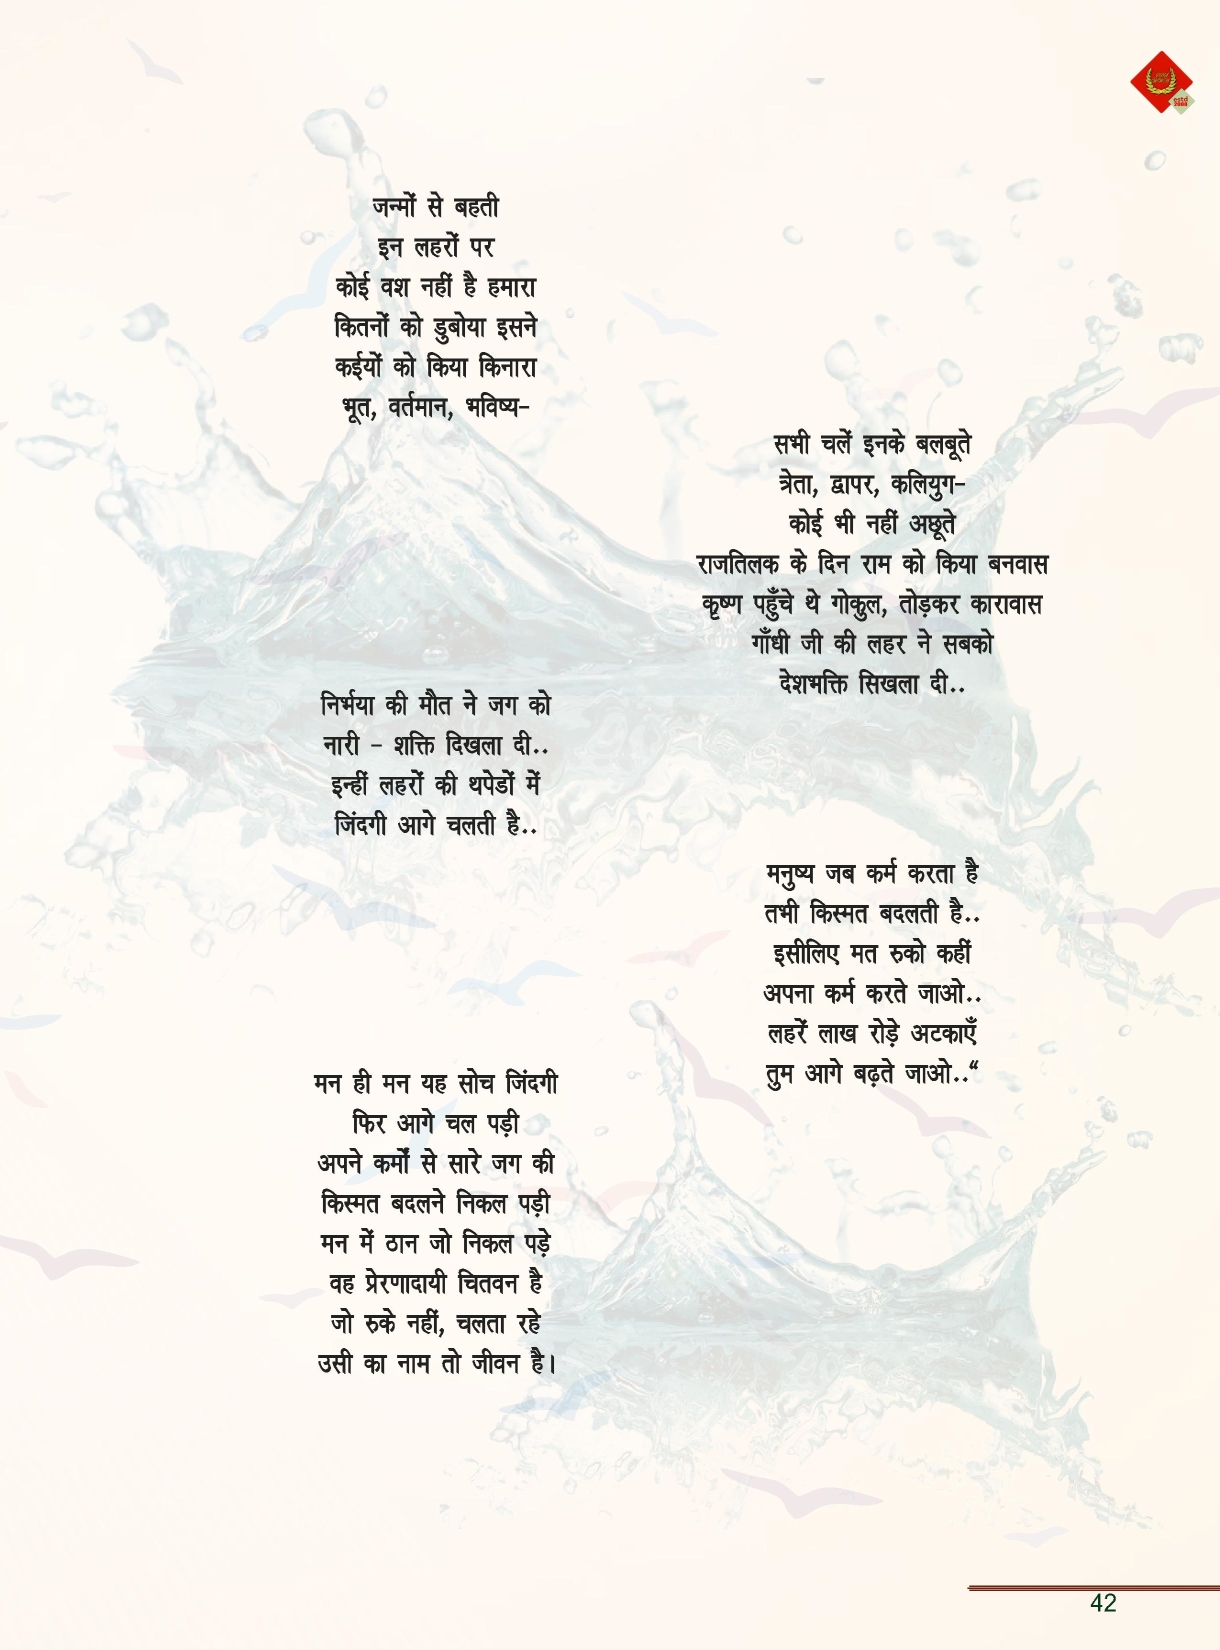 जन्मों से बहती
इन लहरों पर
कोई वश नहीं है हमारा
कितनों को डुबोया इसने
कईयों को किया किनारा
भूत, वर्तमान, भविष्य-
सभी चलें इनके बलबूते
त्रेता, द्वापर, कलियुग-
कोई भी नहीं अछूते
राजतिलक के दिन राम को किया बनवास
कृष्ण पहुँचे थे गोकुल, तोड़कर कारावास
गाँधी जी की लहर ने सबको
देशभक्ति सिखला दी..
निर्भया की मौत ने जग को
नारी - शक्ति दिखला दी..
इन्हीं लहरों की थपेडों में
जिंदगी आगे चलती है..
मनुष्य जब कर्म करता है
तभी किस्मत बदलती है..
इसीलिए मत रुको कहीं
अपना कर्म करते जाओ..
लहरें लाख रोड़े अटकाएँ
तुम आगे बढ़ते जाओ..“
मन ही मन यह सोच जिंदगी
फिर आगे चल पड़ी
अपने कर्मों से सारे जग की
किस्मत बदलने निकल पड़ी
मन में ठान जो निकल पड़े
वह प्रेरणादायी चितवन है
जो रुके नहीं, चलता रहे
उसी का नाम तो जीवन है।
42